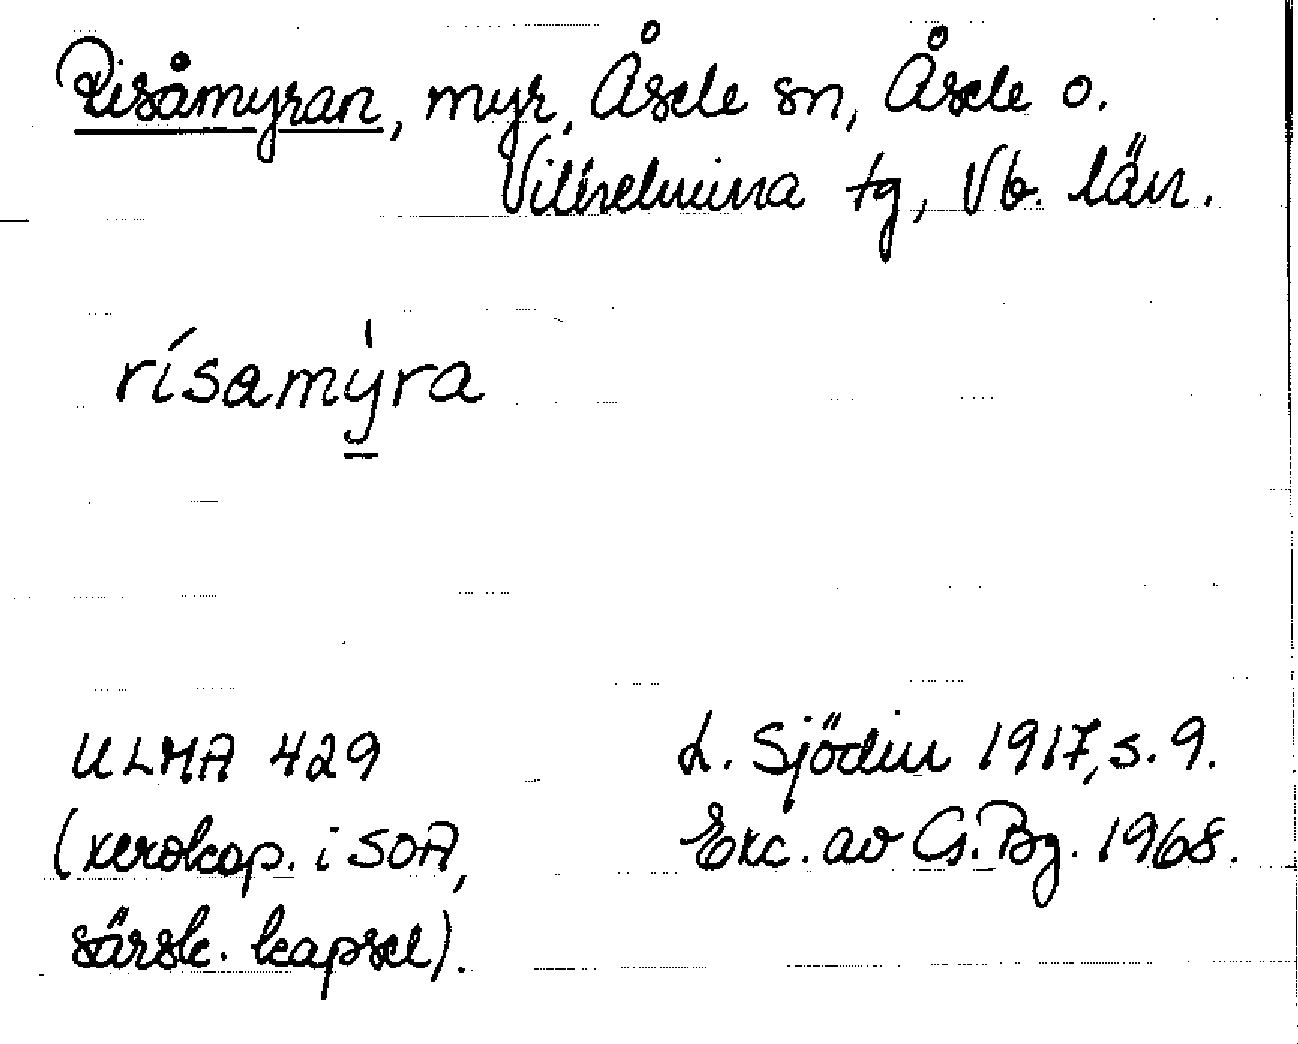 Risåmyran, myr, Åsele sn, Åsele o.
Vilhelmina tg, Vb. län.
rísamýra
ULMA 429
(xerokop. i SOA,
särsk. kapsel).
L. Sjödin 1917, s. 9.
Exc. av G. Bg. 1968.